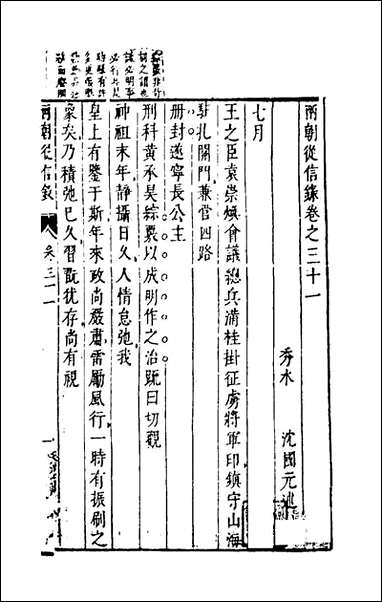 兩朝從信錄卷之三十一
秀水 沈國元述
七月
王之臣袁崇煥會議總兵滿桂掛征虜將軍印鎮守山海
駐扎關門兼管四路
册封遂寧長公主
刑科黃承昊綜覈以成明作之治既曰切觀
神祖末年靜攝日久人情怠弛我
皇上有鑒于斯年來政尚嚴肅雷勵風行一時有振刷之
象矣乃積弛已久習翫猶存尚有視
兩朝從信錄 卷三十一 一